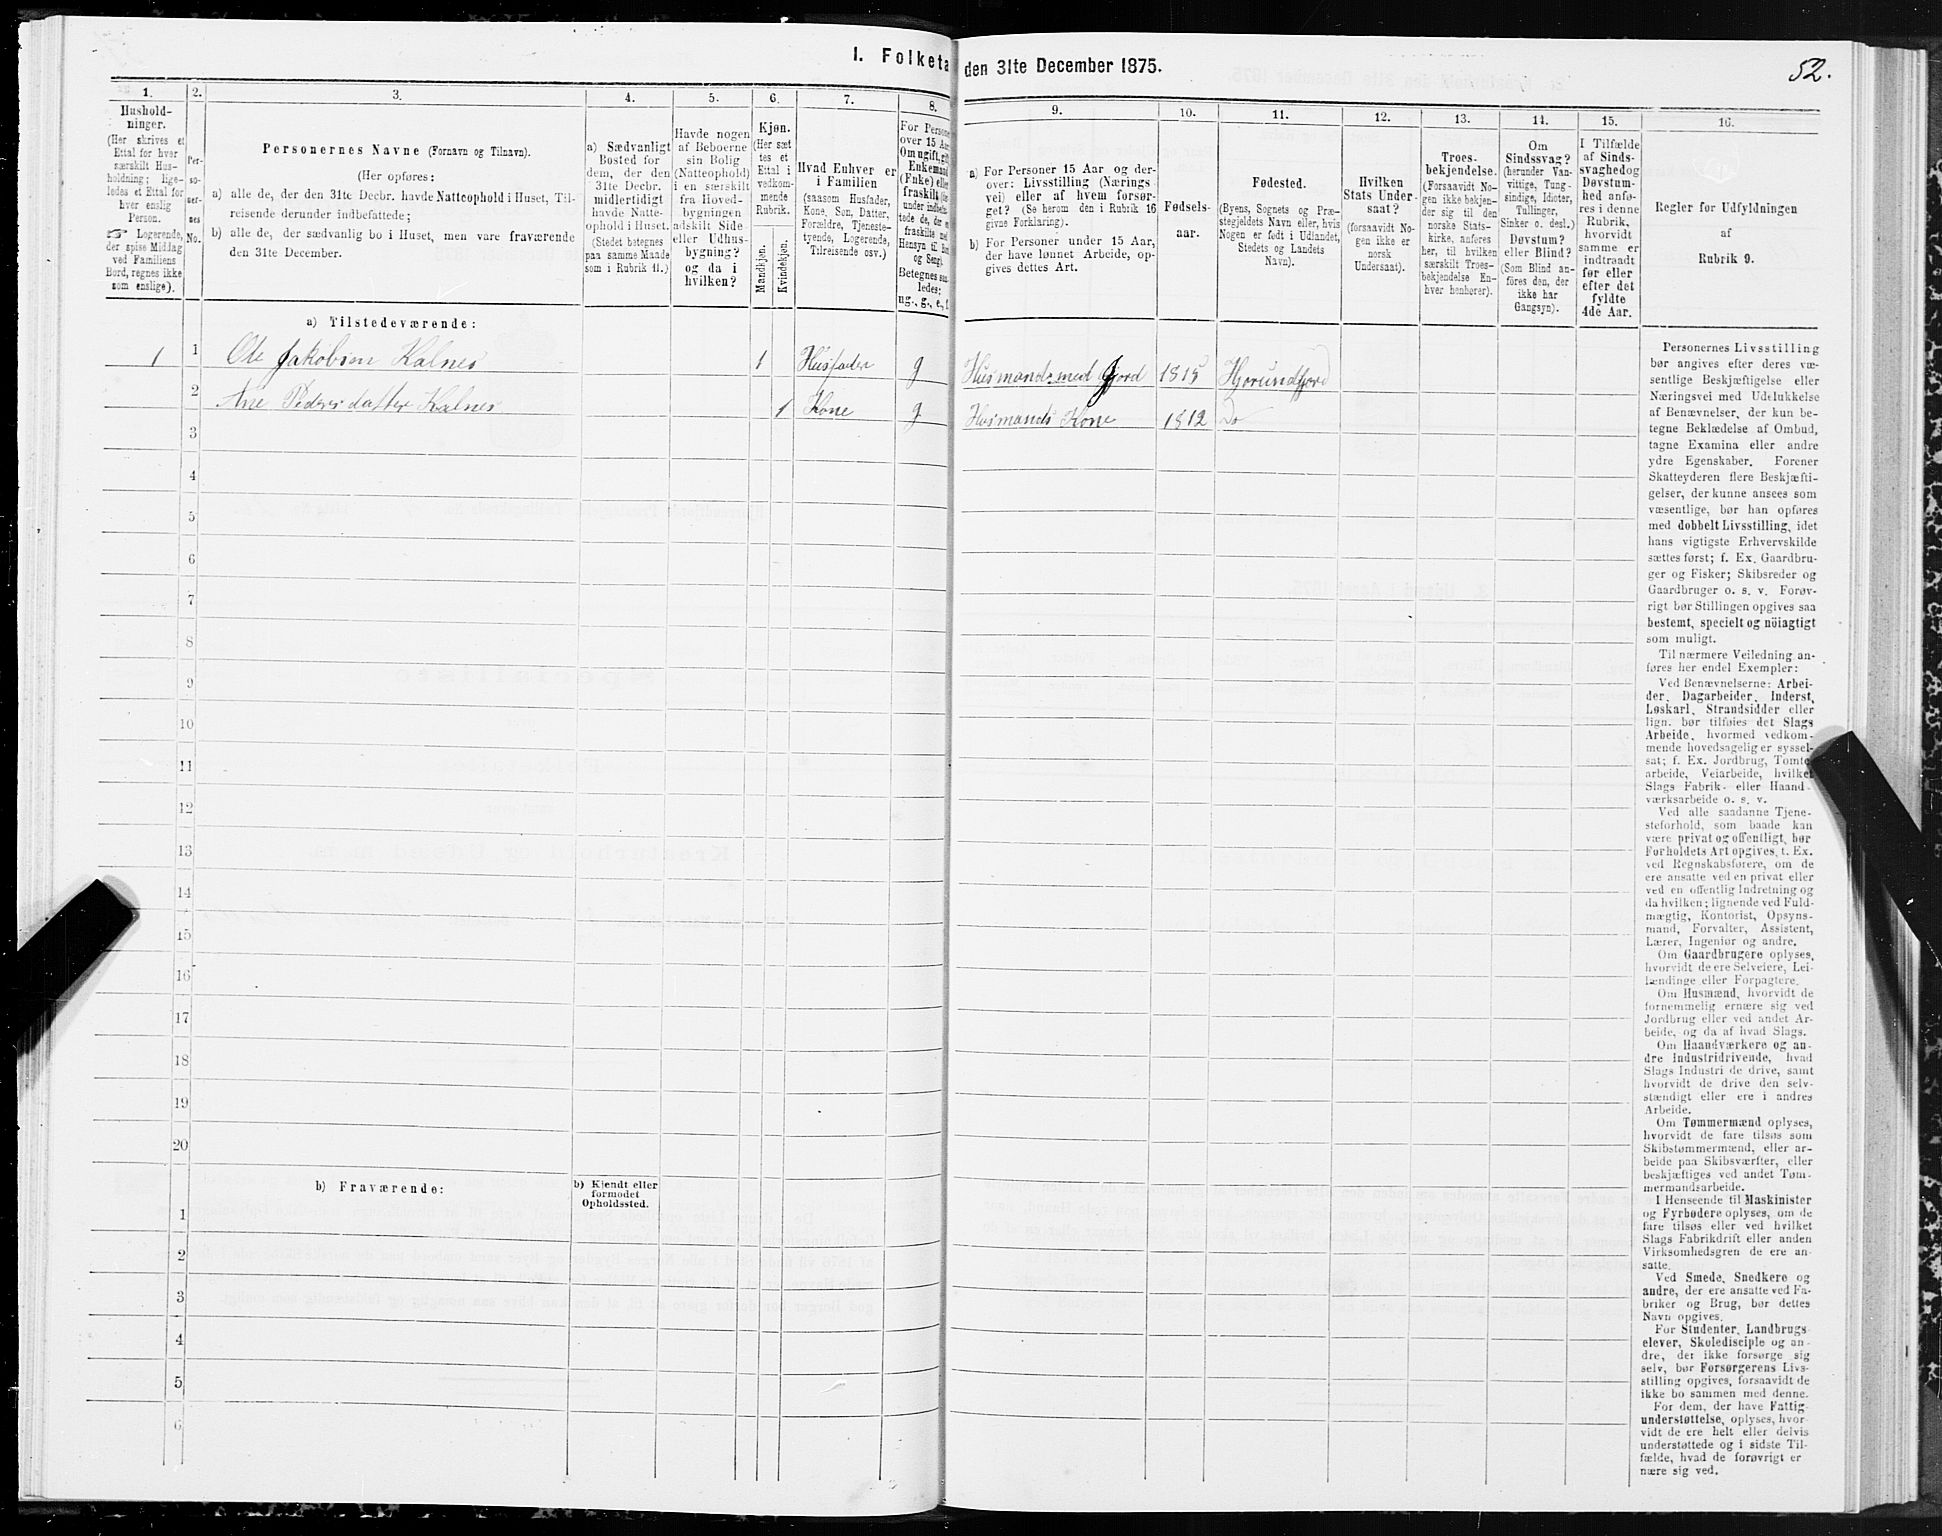 I. Folketæ
den 31te December 1875.
52.
1.
Hushold-
ninger.
(Her skrives et
Ettal for hver
særskilt Hus-
holdning; lige-
ledes et Ettal for
hver enslig
Person.
☞ Logerende,
der spise Middag
ved Familiens
Bord, regnes ikke
som enslige).
2.
Per-
so-
ner-
nes
No.
3.
Personernes Navne (Fornavn og Tilnavn).
(Her opføres:
a) alle de, der den 31te Decbr. havde Natteophold i Huset, Til-
reisende derunder indbefattede;
b) alle de, der sædvanlig bo i Huset, men vare fraværende
den 31te December.
4.
a) Sædvanligt
Bosted for
dem, der den
31te Decbr.
midlertidigt
havde Natte-
ophold i Huset.
(Stedet betegnes
paa samme Maade
som i Rubrik 11.)
5.
Havde nogen
af Beboerne
sin Bolig
(Natteophold)
i en særskilt
fra Hoved-
bygningen
adskilt Side-
eller Udhus-
bygning?
og da i
hvilken?
6.
Kjøn.
(Her sæt
tes et
Ettal i
vedkom-
mende
Rubrik.
Mandkjøn.
Kvindekjøn.
7.
Hvad Enhver er
i Familien
(saasom Husfader,
Kone, Søn, Datter,
Forældre, Tjeneste-
tyende, Logerende,
Tilreisende osv.)
8.
For Persone
over 15 Aa
Om ugift, gift,
Enkemand
(Enke) eller
fraskilt
under indbefat-
tede de, der er
fraskilte med
Hensyn til Bor
og Seng).
Betegnes saa
ledes:
ug., g., e., f.
9.
a) For Personer 15 Aar og der-
over: Livsstilling (Nærings
vei) eller af hvem forsør-
get? (Se herom den i Rubrik 16
givne Forklaring).
b) For Personer under 15 Aar,
der have lønnet Arbeide, op-
gives dettes Art.
10.
Fødsels-
aar.
11.
Fødested.
(Byens, Sognets og Præ-
stegjeldets Navn eller, hvis
Nogen er født i Udlandet,
Stedets og Landets
Navn).
12.
Hvilken
Stats Under-
saat?
(forsaavidt No-
gen ikke er
norsk
Undersaat).
13.
Troes-
bekjendelse.
(Forsaavidt No-
gen ikke bekjen-
der sig til den
norske Stats-
kirke, anføres
her, til hvilken
særskilt Troes-
bekjendelse En-
hver henhører).
14.
Om
Sindssvag?
(herunder Van-
vittige, Tung-
sindige, Idioter,
Tullinger,
Sinker o. desl.)
Døvstum?
eller Blind?
(Som Blind an-
føres den, der
ikke har
Gangsyn).
15.
I Tilfælde
af Sinds-
svaghed og
Døvstum-
hed anfø-
res i denne
Rubrik,
hvorvidt
samme er
indtraadt
før eller
efter det
fyldte
4de Aar.
16.
Regler for Udfyldningen
af
Rubrik 9.
a) Tilstedeværende:
1 1 Ole Jakobsen Kalnes 1 Husfader g Husmand med Jord 1815 Hjorundfjord
2 Ane Pedersdatter Kalnes 1 Kone g Husmands Kone 1812 Do
3
4
5
6
7
8
9
10
11
12
13
14
15
16
17
18
19
20
b) Fraværende:
b) Kjendt eller
formodet
Opholdssted.
1
2
3
4
5
6
Personernes Livsstilling
bør angives efter deres væ-
sentlige Beskjæftigelse eller
Næringsvei med Udelukkelse
af Benævnelser, der kun be-
tegne Beklædelse af Ombud,
tagne Examina eller andre
ydre Egenskaber. Forener
Skatteyderen flere Beskjæfti-
gelser, der kunne ansees som
væsentlige, bør han opføres
med dobbelt Livsstilling, idet
hans vigtigste Erhvervskilde
sættes først; f. Ex. Gaardbru-
ger og Fisker; Skibsreder og
Gaardbruger o. s. v. Forøv-
rigt bør Stillingen opgives saa
bestemt, specielt og nöiagtigt
som muligt.
Til nærmere Veiledning an-
føres her endel Exempler:
Ved Benævnelserne: Arbei-
der, Dagarbeider, Inderst,
Løskarl, Strandsidder eller
lign. bør tilføies det Slags
Arbeide, hvormed vedkom-
mende hovedsagelig er syssel-
sat; f. Ex. Jordbrug, Tomte-
arbeide, Veiarbeide, hvilket
Slags Fabrik- eller Haand-
værksarbeide o. s. v.
Ved alle saadanne Tjene-
steforhold, som baade kan
være privat og offentligt, bør
Forholdets Art opgives, t. Ex.
ved Regnskabsførere, om de
ere ansatte ved en privat eller
ved en offentlig Indretning og
da hvilken; lignende ved Fuld-
mægtig, Kontorist, Opsyns-
mand, Forvalter, Assistent,
Lærer, Ingeniør og andre.
Om Gaardbrugere oplyses,
hvorvidt de ere Selveiere, Lei-
lændinge eller Forpagtere.
Om Husmænd, hvorvidt de
fornemmelig ernære sig ved
Jordbrug eller ved andet Ar-
beide, og da af hvad Slags.
Om Haandværkere og an-
dre industridrivende, hvad
Slags Industri de drive, samt
hvorvidt de drive den selv-
stændigt eller ere i andres
Arbeide.
Om Tømmermænd oplyses,
hvorvidt de fare tilsøs som
Skibstømmermænd, eller ar-
beide paa Skibsværfter, eller
beskjæftiges ved andet Tøm-
mermandsarbeide.
I Henseende til Maskinister
og Fyrbødere oplyses, om de
fare tilsøs eller ved hvilket
Slags Fabrikdrift eller anden
Virksomhedsgren de ere an-
satte.
Ved Smede, Snedkere og
andre, der ere ansatte ved Fa-
briker og Brug, bør dettes
Navn opgives.
For Studenter, Landbrugs-
elever, Skoledisciple og an-
dre, der ikke forsørge sig
selv, bør Forsørgerens Livs-
stilling opgives, forsaavidt de
ikke bo sammen med denne.
For dem, der have Fattig-
understøttelse, oplyses, hvor-
vidt de ere helt eller delvis
understøttede og i sidste Til-
fælde, hvad de forøvrigt er
nære sig ved.